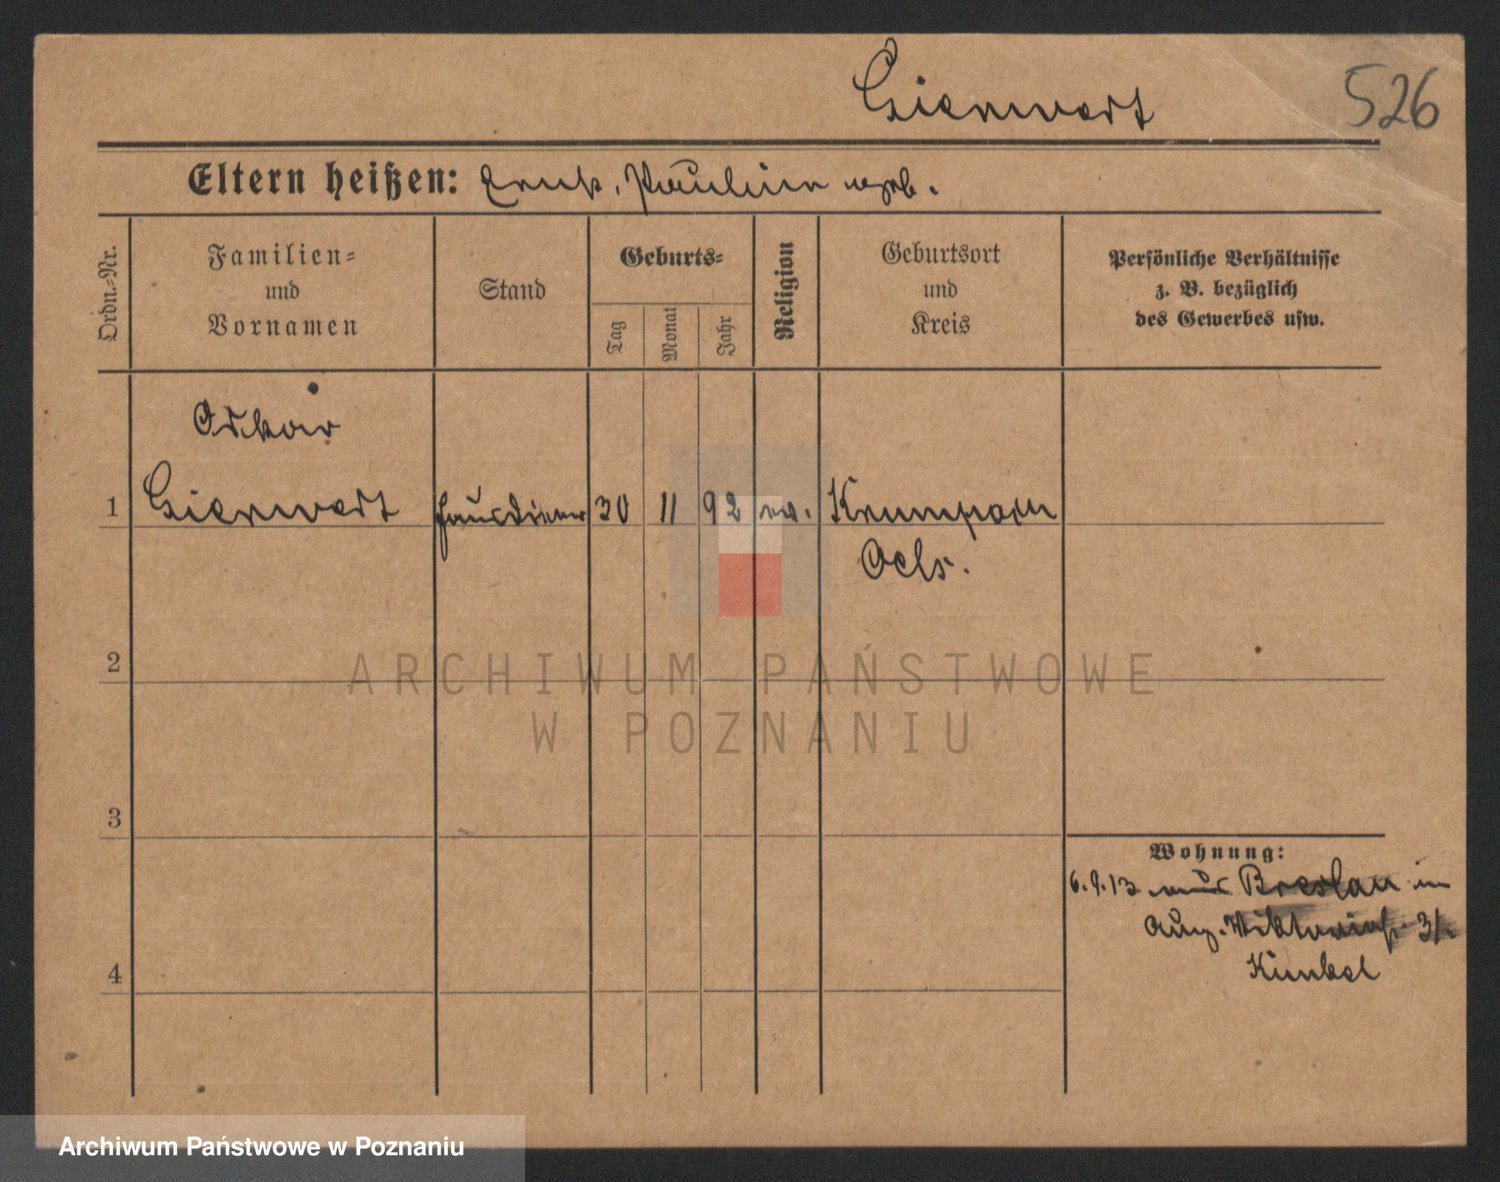 Gierwert
526
Eltern heißen: Ernst, Pauline geb.
Ordn.-Nr.
Familien-
und
Vornamen
Stand
Geburts-
Tag
Monat
Jahr
Religion
Geburtsort
und
Kreis
Persönliche Verhältnisse
z. B. bezüglich
des Gewerbes usw.
Oskar
1 Gierwert Hausdiener 30 11 92 ev.
Oels.
2
3
4
Wohnung:
6.9.13 aus Breslau in
Aug. Viktoriastr.
Kunkel
ARCHIWUM PAŃSTWOWE
W POZNANIU
Archiwum Państwowe w Poznaniu